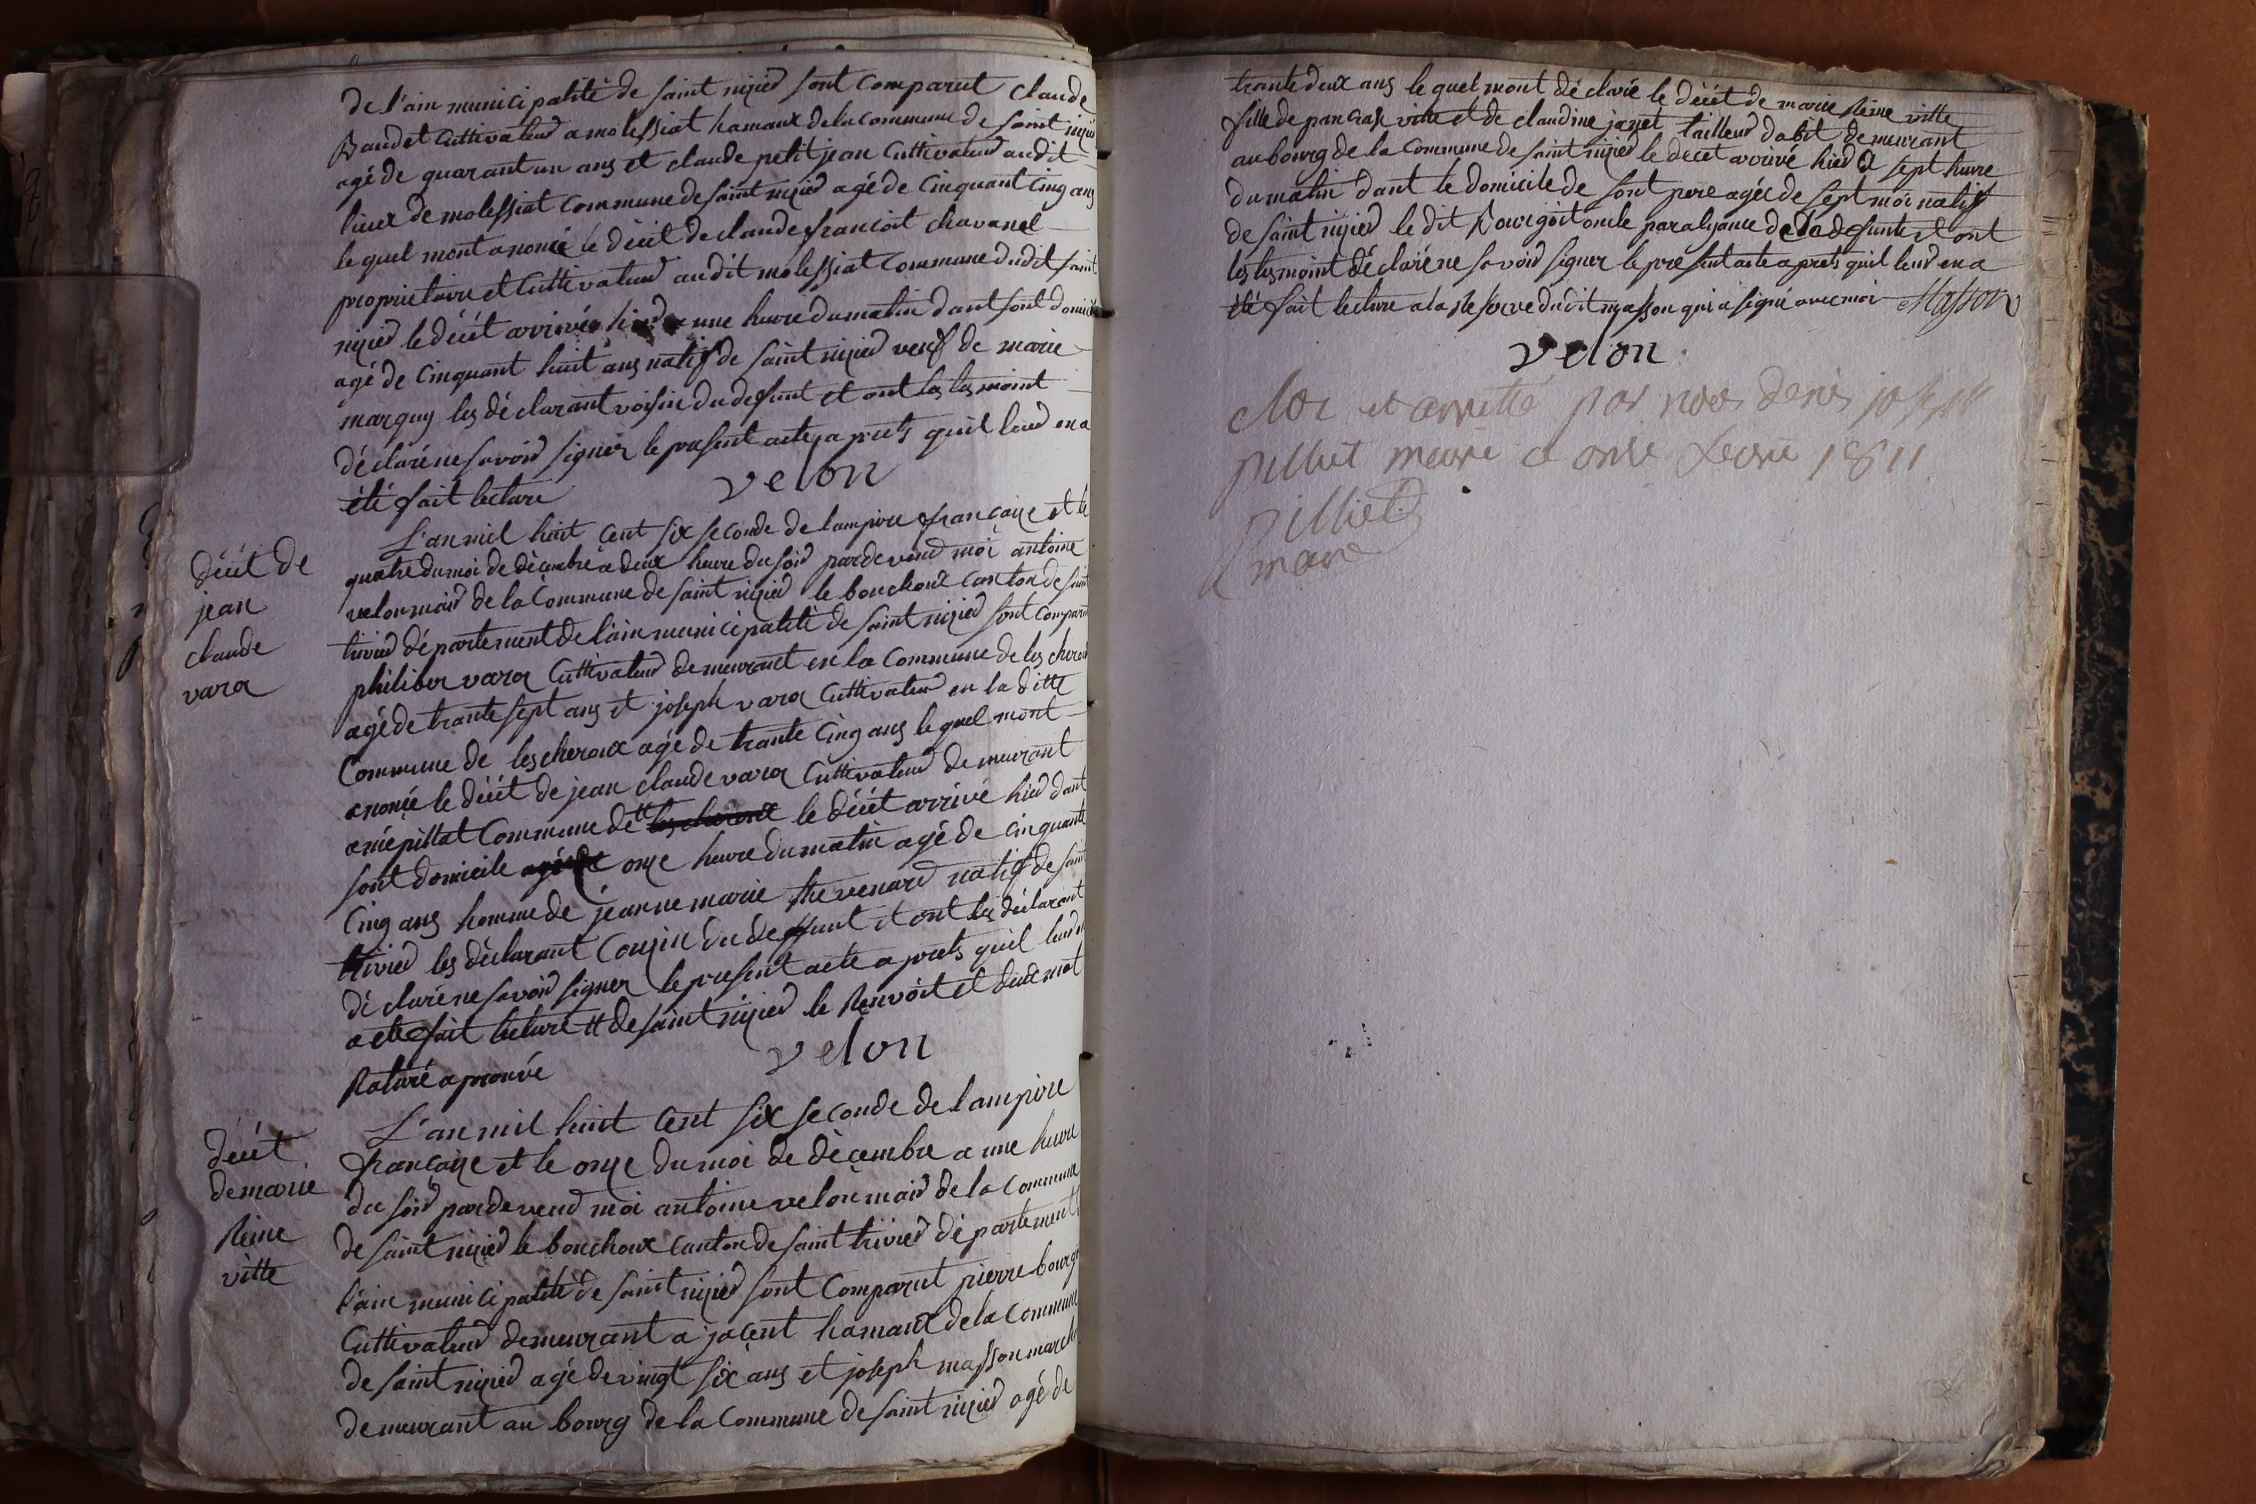 de l'ain municipalité de saint nizied sont comparut claude
Baudet Cuttivateud a molessiat hamaux de la commune de saint nizied
agé de quarant un ans et claude petit jean Cuttivateud audit
lieux de molessiat commune de saint nizied agé de Cinquant Cinq ans
le quel mont anoncé le décét de claude francoit chavanel
proprietaire et Cuttivateud audit molessiat commune dudit saint
nizied le décét arrivée hied a une heure du matin dant sont domicile
agé de Cinquant huit ans natif de saint nizied veuf de marie
marguy les déclarant voisin du defunt et ont les tesmoint
déclaré ne savoid signer le present acte a prets quil leud en a
été fait lecture
velon
décét de
jean
claude
vara
L'an mil huit cent six seconde de lampire francaize et le
quatre du moi de décembre a deux heure du soid pardevend moi antoine
velon maid de la Commune de saint nizied le bouchoux canton de saint
trivied département de l'ain municipalité de saint nizied sont comparut
philiber vara Cuttivateud demeurant en la Commune de les cheroux
agé de trante sept ans et joseph vara Cuttivateud en la ditte
Commune de lescheroux agé de trante Cinq ans le quel mont
anoncé le décét de jean claude varoz Cuttivateud demeurant
a népillat Commune de # les cheroux le décét arrivé hied dant
sont domicile agé de onze heure du matin agé de cinquante
Cinq ans homme de jeanne marie thevenard natif de saint
trivied les déclarant Couzin du deffunt et ont les déclarant
déclaré ne savoid signer le present acte a prets quil leud en
a été fait lecture # de saint nizied le Renvoit et deux mot
Raturé aprouvé
velon
décét
de marie
Reine
vitte
L'an mil huit cent six seconde de lampire
francaize et le onze du moi de décembre a une heure
du soid pardevend moi antoine velon maid de la commune
de saint nizied le bouchoux canton de saint trivied département
l'ain municipalité de saint nizied sont Comparut pierre bourg
Cuttivateud demeurant a jacent hamaux de la commune
de saint nizied agé de vingt six ans et joseph masson march
demeurant au bourg de la commune de saint nizied agé de
trante deux ans le quel mont déclaré le décét de marie Reine vitte
fille de pancrase vitte et de claudine jayet tailleud dabit demeurant
au bourg de la commune de saint nizied le decet arrivé hied a sept heure
du matin dant le domicile de sont pere agée de sept moi natif
de saint nizied le dit Bourgoit oncle paralyance de la defunte et ont
les tesmoint déclaré ne savoid signer le present acte a prets quil leud en a
été fait lecture a la Reserve dudit masson qui a signé avec moi Masson
velon
Cloc et arretté par nous denis joseph
pilliet maire a onse 1811
pilliet
maire